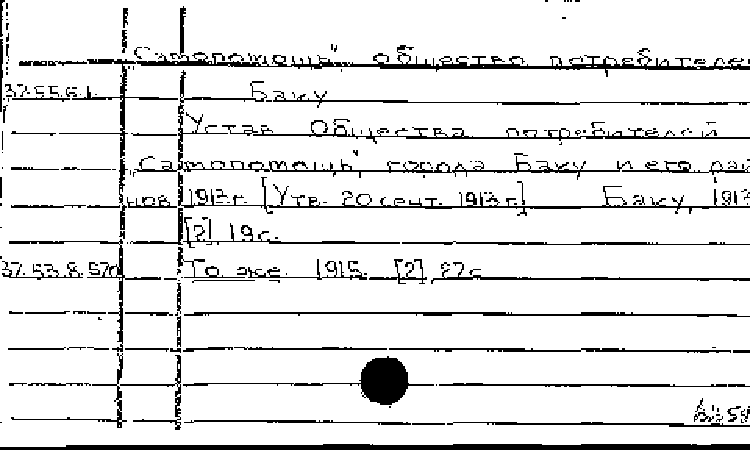 "Самопомощь", общество потребителе
37.55.6.1. Баку
Устав Общества потребителей
"Самопомощь", города Баку и его рай
нов 1913 г. [Утв. 20 сент. 1913 г.] Баку, 1913
[2], 19 с.
37.53.8.570 То же. 1915. [2], 27 с.